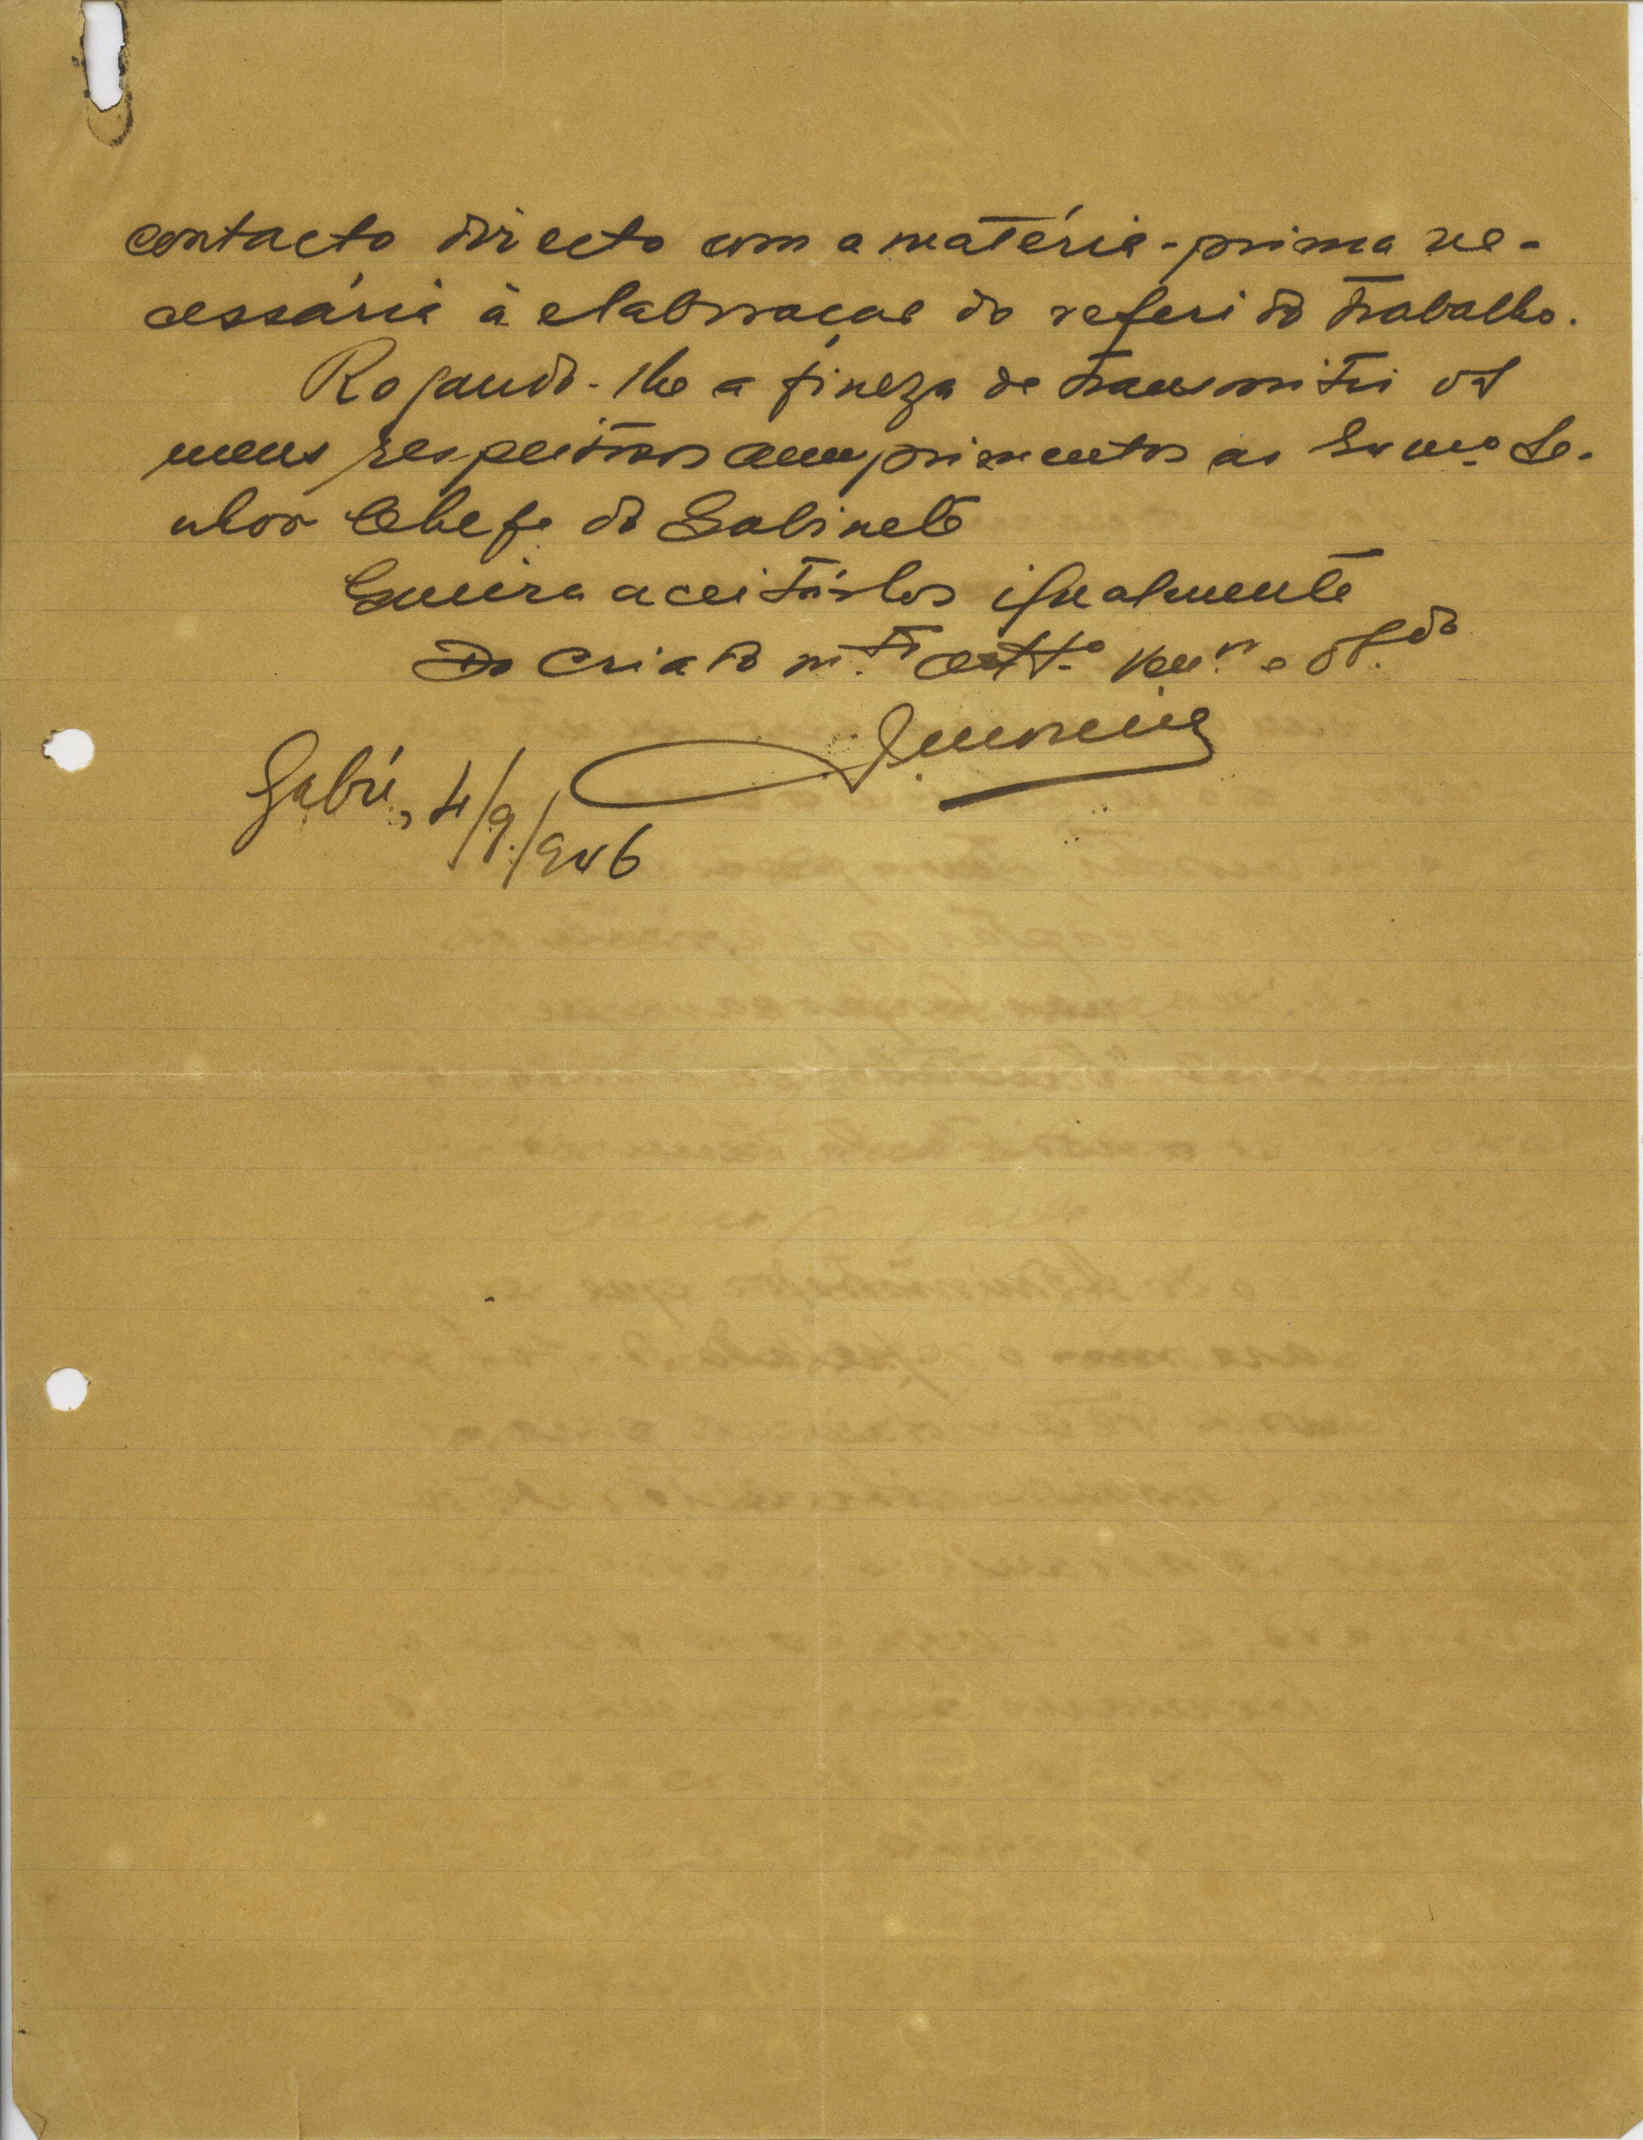 contacto directo com a matéria-prima ne-
cessária à elaboração do referido trabalho.
Rogando-lhe a fineza de transmitir os
meus respeitosos cumprimentos ao Exmo. Se-
nhor Chefe do Gabinete
Queira aceitá-los igualmente
Do Criado m.to att.o ven.or e ob.do
Gabú, 4/9/946